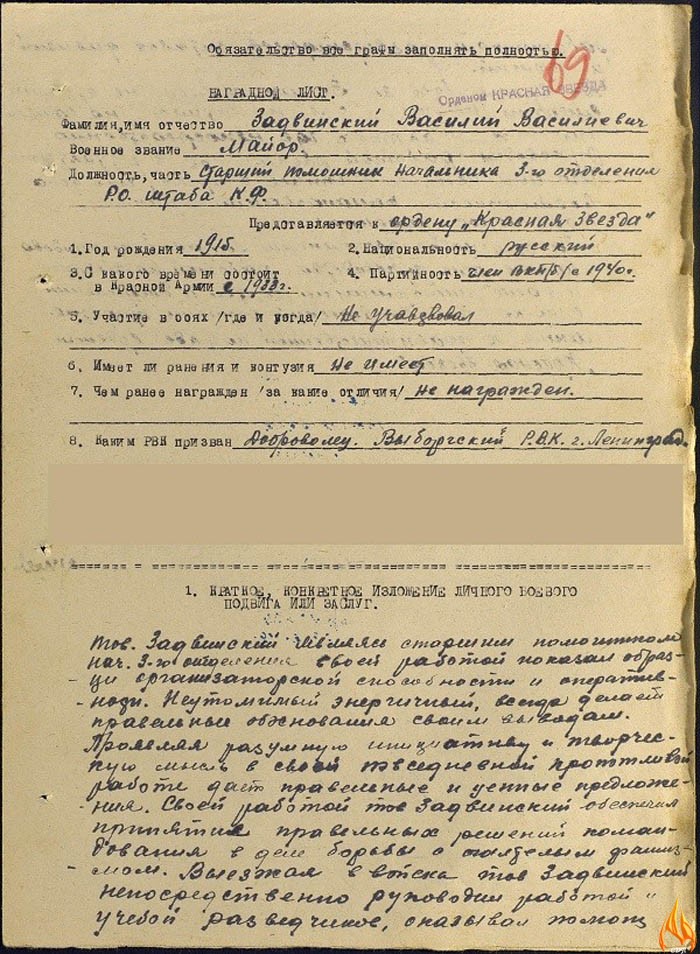 Обязательство все графы заполнять полностью.
69
Орденом КРАСНАЯ ЗВЕЗДА
НАГРАДНОЙ ЛИСТ.
Фамилия,имя отчество Задвинский Василий Василиевич
Военное звание Майор.
Должность, часть Старший помошник Начальника 3-го отделения
Р.О. штаба К.Ф.
Представляется к ордену „Красная Звезда"
1.Год рождения 1915 2.Национальность русский
3.С какого времени состоит 4. Партийность член ВКП/б/ с 1940г.
в Красной Армии с 1933г.
5. Участие в боях /где и когда/ Не участвовал
6. Имеет ли ранения и контузия Не имеет
7. Чем ранее награжден /за какие отличия/ не награжден.
8. Каким РВК призван Добровольц. Выборгский Р.В.К. г. Ленинград.
1. КРАТКОЕ, КОНКРЕТНОЕ ИЗЛОЖЕНИЕ ЛИЧНОГО БОЕВОГО
ПОДВИГА ИЛИ ЗАСЛУГ.
Тов. Задвинский являясь старшим помошником
нач. 3-го отделения своей работой показал образ-
ци организаторской способности и оператив-
ности. Неутомимый энергичный, всегда делает
правельные обоснования своим выводам.
Проявляя разумную инициативу и творчес-
кую мысль в своей повседневной кропотливой
работе дает правельные и ценные предложе-
ния. Своей работой тов Задвинский обеспечил
принятие правельных решений коман-
дования в деле борьбы с фашиз-
мом. Выезжая в войска тов Задвинский
непосредственно руководил работой и
учебой разведчиков, оказывал помощ